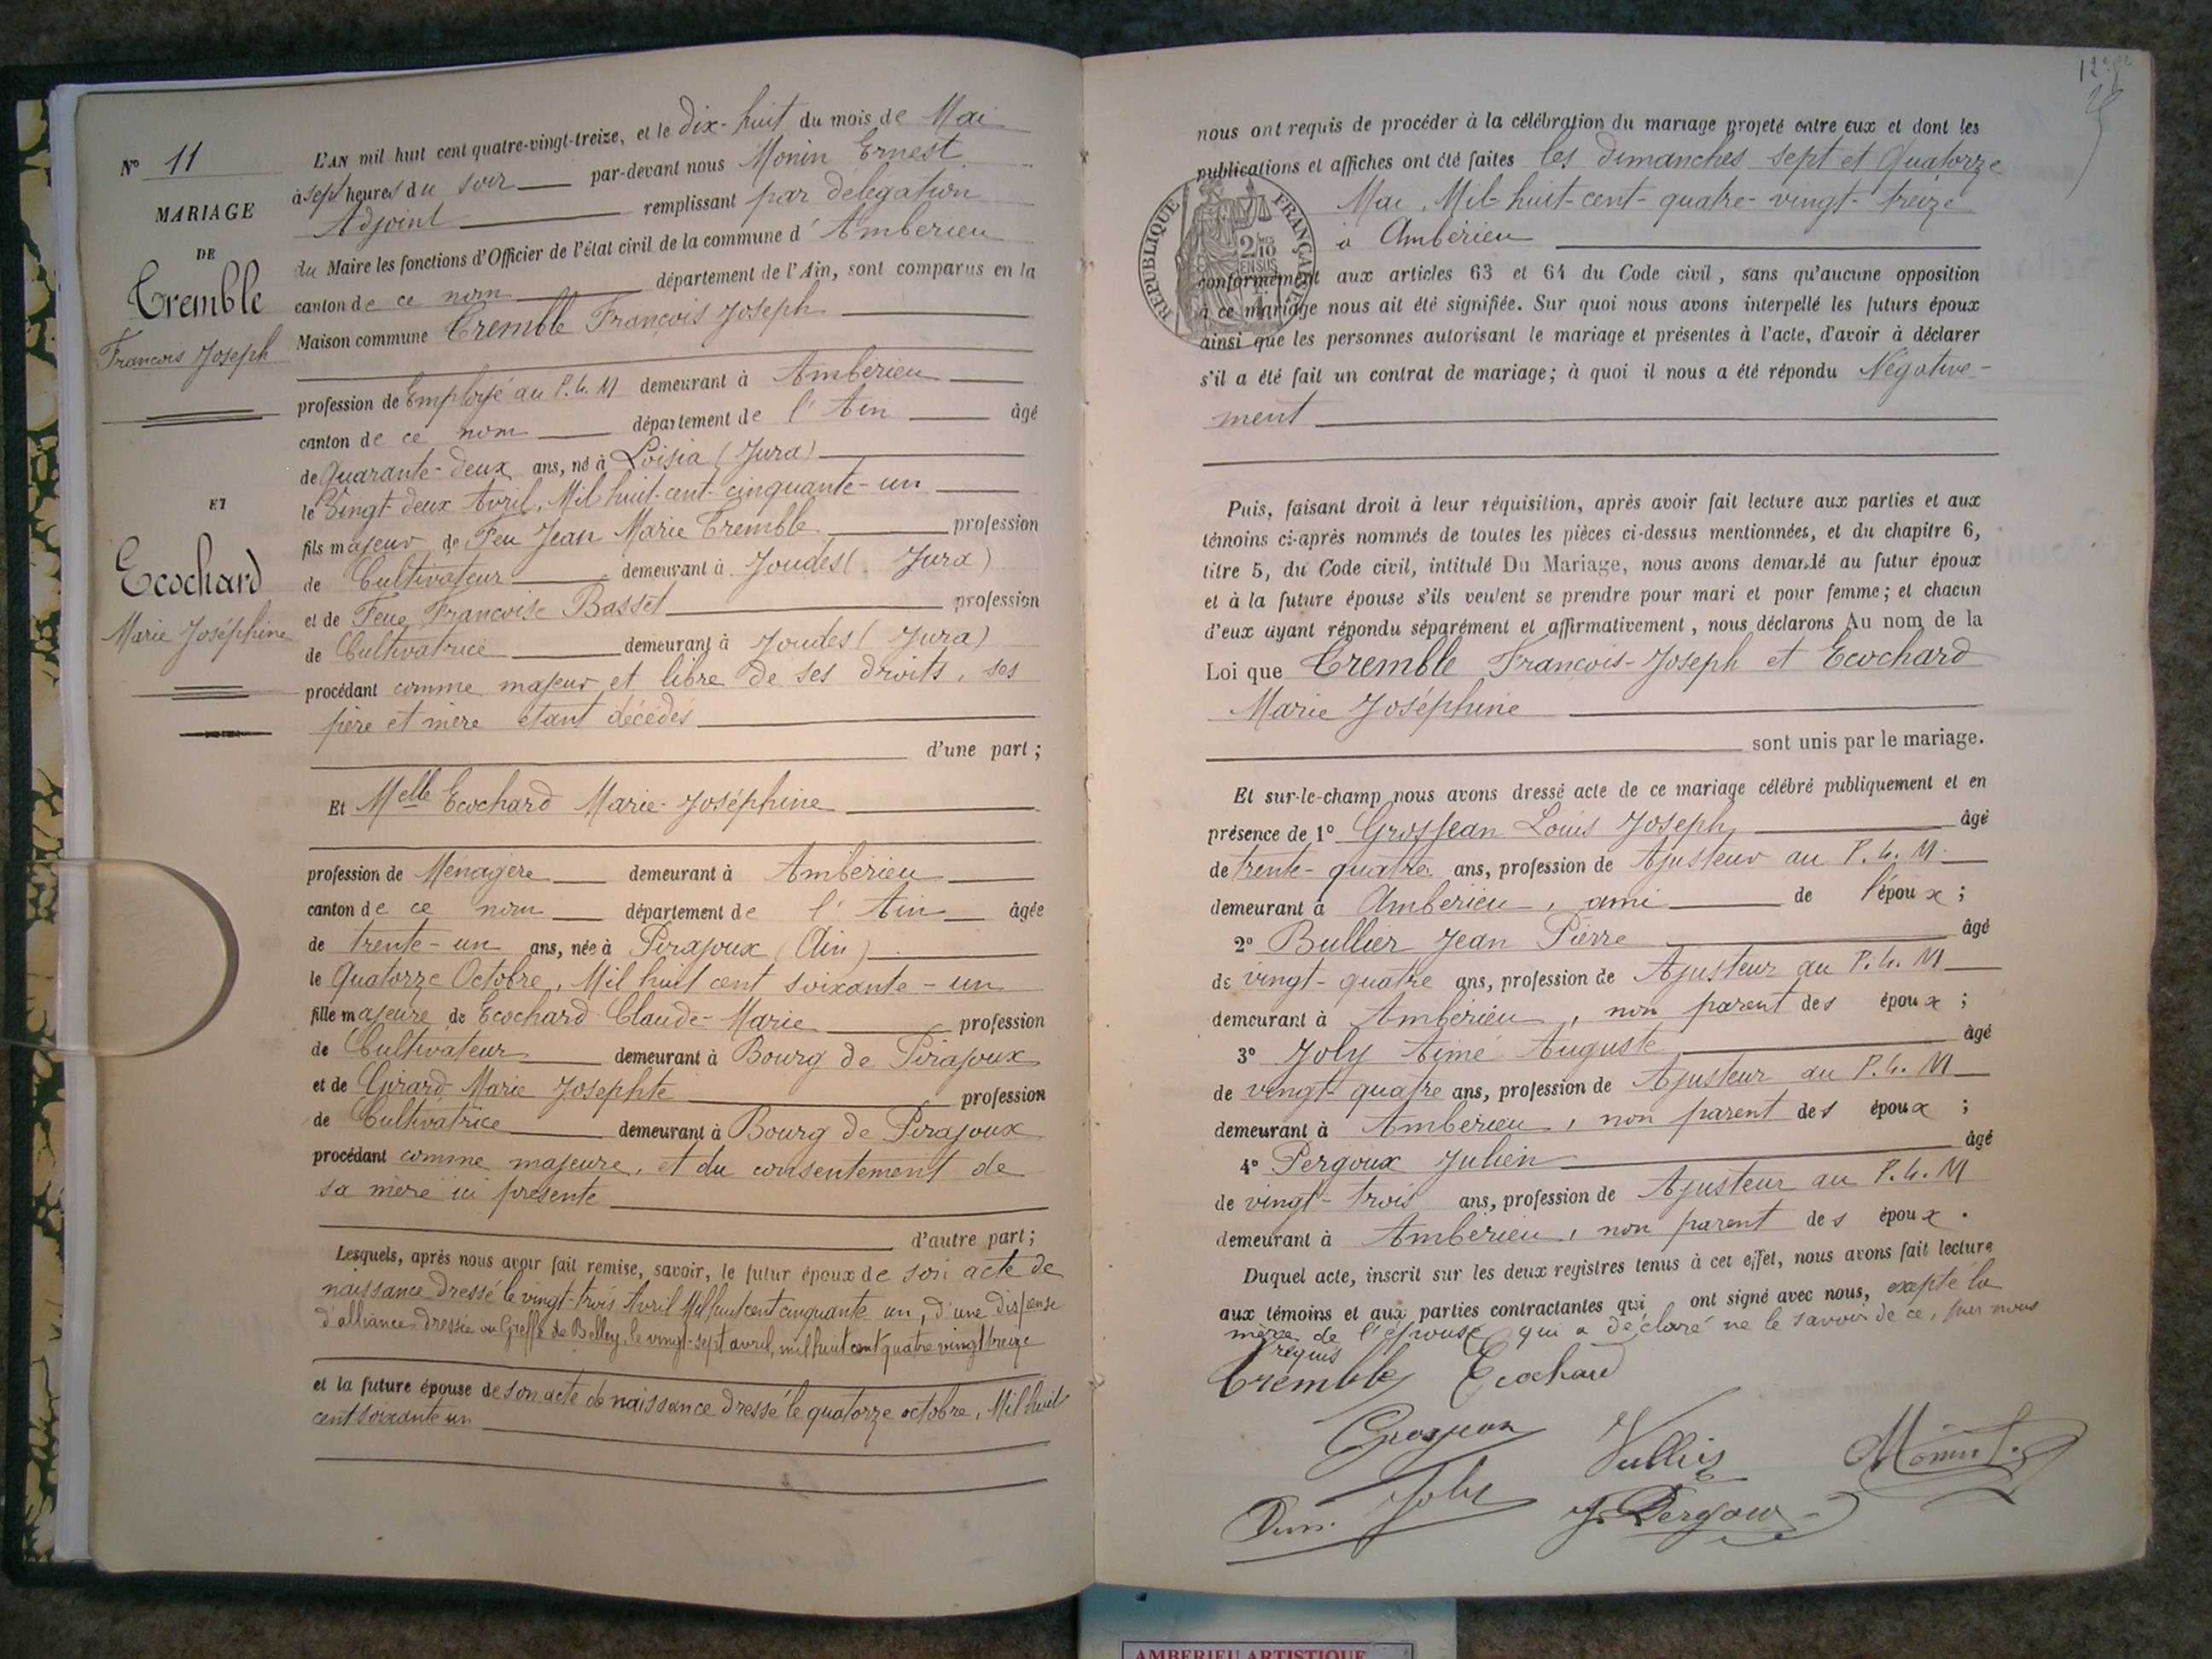 Nº 11
MARIAGE
DE
Tremble
François Joseph
ET
Ecochard
Marie Joséphine
L'AN mil huit cent quatre-vingt-treize, et le dix-huit du mois de Mai
à sept heures du soir par-devant nous Monin Ernest
Adjoint remplissant par délégation
du Maire les fonctions d'Officier de l'état civil de la commune d'Ambérieu
canton de ce nom département de l'Ain, sont comparus en la
Maison commune Tremble François Joseph
profession de Employé au P. L. M demeurant à Ambérieu
canton de ce nom département de l'Ain âgé
de Quarante-deux ans, né à Loisia (Jura)
le Vingt-deux Avril, Mil huit-cent-cinquante-un
fils majeur de Feu Jean Marie Tremble profession
de Cultivateur demeurant à Joudes (Jura)
et de Feue Françoise Basset profession
de Cultivatrice demeurant à Joudes (Jura)
procédant comme majeur et libre de ses droits, ses
père et mère étant décédés
d'une part ;
Et Melle Ecochard Marie-Joséphine
profession de Ménagère demeurant à Ambérieu
canton de ce nom département de l'Ain âgée
de trente-un ans, née à Pirajoux (Ain)
le Quatorze Octobre, Mil huit cent soixante-un
fille majeure de Ecochard Claude-Marie profession
de Cultivateur demeurant à Bourg de Pirajoux
et de Girard Marie Josephte profession
de Cultivatrice demeurant à Bourg de Pirajoux
procédant comme majeure, et du consentement de
sa mère ici présente
d'autre part ;
Lesquels, après nous avoir fait remise, savoir, le futur époux de son acte de
naissance dressé le vingt-trois Avril Mil huit cent cinquante un, d'une dispense
d'alliance dressée au Greffe de Belley, le vingt-sept avril, mil huit cent quatre vingt treize
et la future épouse de son acte de naissance dressé le quatorze octobre, Mil huit
cent soixante un
nous ont requis de procéder à la célébration du mariage projeté entre eux et dont les
publications et affiches ont été faites les dimanches sept et Quatorze
Mai, Mil-huit-cent-quatre-vingt-treize
à Ambérieu
RÉPUBLIQUE FRANÇAISE
2/10 EN SUS
conformément aux articles 63 et 64 du Code civil, sans qu'aucune opposition
à ce mariage nous ait été signifiée. Sur quoi nous avons interpellé les futurs époux
ainsi que les personnes autorisant le mariage et présentes à l'acte, d'avoir à déclarer
s'il a été fait un contrat de mariage ; à quoi il nous a été répondu Négative-
ment
Puis, faisant droit à leur réquisition, après avoir fait lecture aux parties et aux
témoins ci-après nommés de toutes les pièces ci-dessus mentionnées, et du chapitre 6,
titre 5, du Code civil, intitulé Du Mariage, nous avons demandé au futur époux
et à la future épouse s'ils veulent se prendre pour mari et pour femme ; et chacun
d'eux ayant répondu séparément et affirmativement, nous déclarons Au nom de la
Loi que Tremble François-Joseph et Ecochard
Marie Joséphine
sont unis par le mariage.
Et sur-le-champ nous avons dressé acte de ce mariage célébré publiquement et en
présence de 1º Grosjean Louis Joseph âgé
de trente-quatre ans, profession de Ajusteur au P. L. M.
demeurant à Ambérieu, ami de l'époux ;
2º Bullier Jean Pierre âgé
de vingt-quatre ans, profession de Ajusteur au P. L. M
demeurant à Ambérieu, non parent des époux ;
3º Joly Aimé Auguste âgé
de vingt-quatre ans, profession de Ajusteur au P. L. M
demeurant à Ambérieu, non parent des époux ;
4º Pergoux Julien âgé
de vingt-trois ans, profession de Ajusteur au P. L. M
demeurant à Ambérieu, non parent des époux.
Duquel acte, inscrit sur les deux registres tenus à cet effet, nous avons fait lecture
aux témoins et aux parties contractantes qui ont signé avec nous, excepté la
mère de l'épouse qui a déclaré ne le savoir de ce, par nous
requis
Tremble Ecochard
Grosjean Vullier Monin
Joly J. Pergoux
AMBERIEU ARTISTIQUE